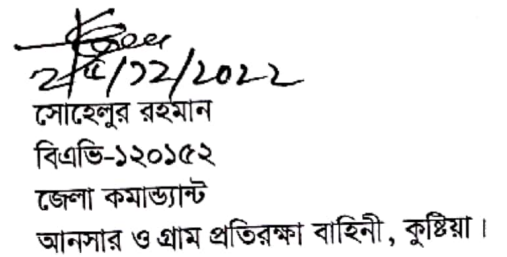 /১২/২০২২
সোহেলুর রহমান
বিএভি-১২০১৫২
জেলা কমান্ড্যান্ট
আনসার ও গ্রাম প্রতিরক্ষা বাহিনী, কুষ্টিয়া।